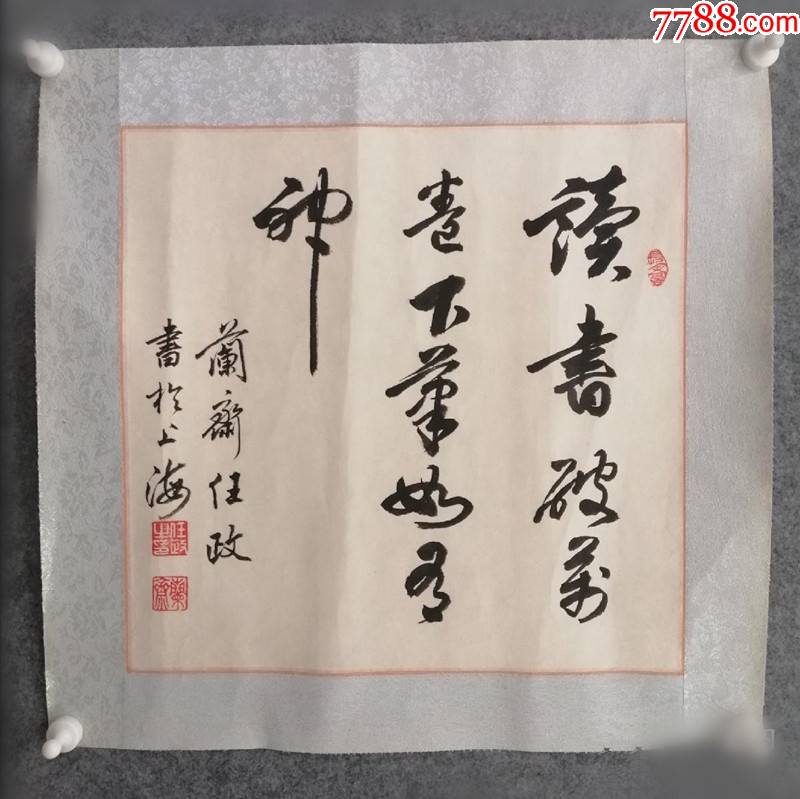 7788.com
讀書破萬
卷下筆如有
神
蘭齋任政
書於上海
任政
蘭齋